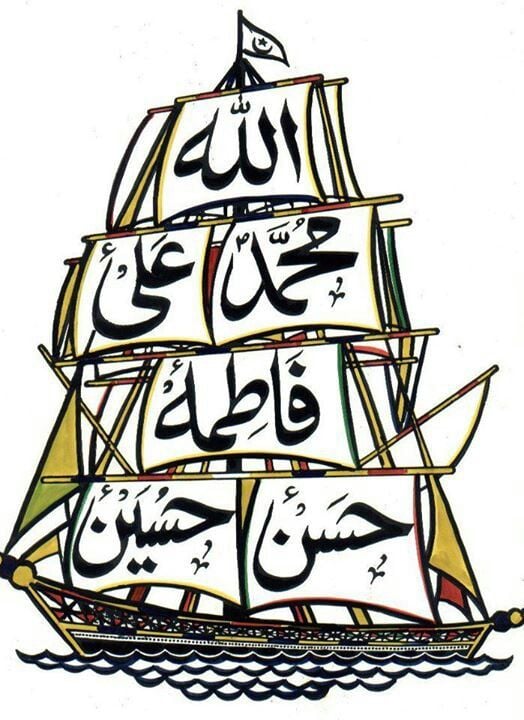 الله
محمّد علی
فاطمه
حسن حسین